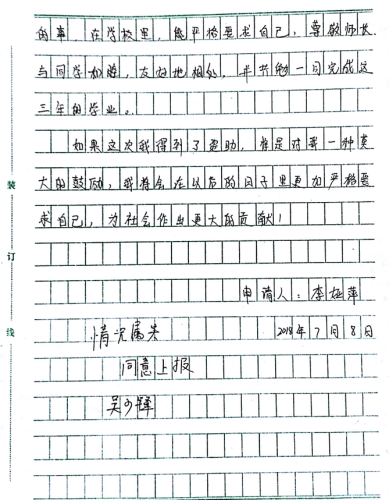 的事。在学校里,能严格要求自己,尊敬师长
与同学和睦,友好地相处,并共勉一同完成这
三年的学业。
如果这次我得到了资助,肯是对我一种莫
大的鼓励,我将会在以后的日子里更加严格要
求自己,为社会作出更大的贡献!
装
订
线
申请人:李娅萍
2018年7月8日
情况属实
同意上报